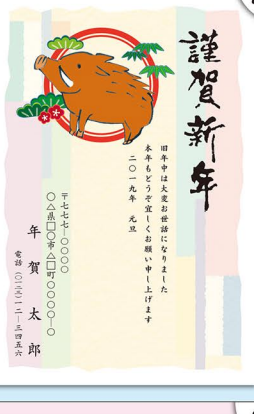 謹賀新年
旧年中は大変お世話になりました
本年もどうぞ宜しくお願い申し上げます
二〇一九年 元旦
〒七七七―〇〇〇〇
〇△県□〇市△□町〇〇〇〇―〇
年賀太郎
電話(〇一二三)一二―三四五六